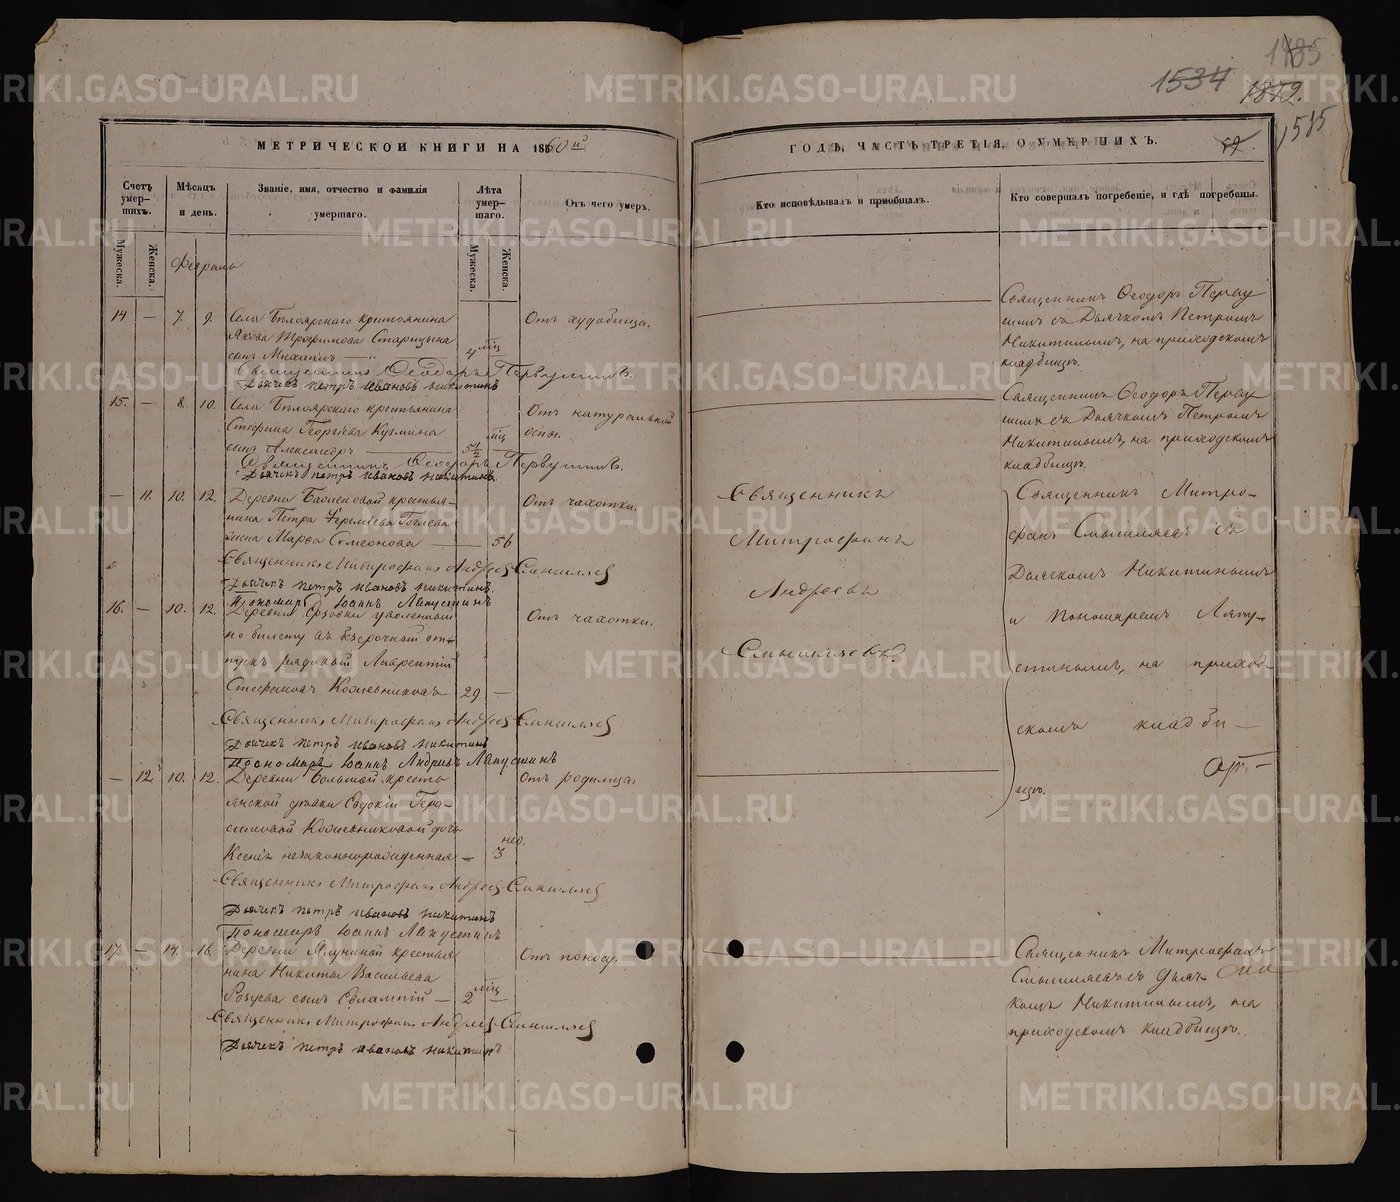 1485
1534
1879.
1585
МЕТРИЧЕСКОЙ КНИГИ НА 1860й
ГОДЪ, ЧАСТЬ ТРЕТІЯ, О УМЕРШИХЪ.
Счетъ умер-шихъ.
Мужеска.
Женска.
Мѣсяцъ и день.
Званіе, имя, отчество и фамилія умершаго.
Лѣта умер-шаго.
Мужеска.
Женска.
Отъ чего умеръ.
Кто исповѣдывалъ и приобщалъ.
Кто совершалъ погребеніе, и гдѣ погребены.
Февраль
14 — 7. 9. Села Бѣлоярскаго крестьянина
Якова Трофимова Старицына
сынъ Михаилъ — 4 мѣц
Отъ худобища.
Священникъ Ѳеодоръ Перву
шинъ съ Дьячкомъ Петромъ
Никитинымъ, на приходскомъ
кладбищѣ.
Священникъ Ѳеодоръ Первушинъ.
Дьячекъ петръ ивановъ никитинъ
15. — 8. 10. Села Бѣлоярскаго крестьянина
Стефана Георгіева Кузмина
сынъ Александръ — 5½ мѣц
Отъ натуральной
оспы.
Священникъ Ѳеодоръ Перву
шинъ съ Дьячкомъ Петромъ
Никитинымъ, на приходскомъ
кладбищѣ.
Священникъ Ѳеодоръ Первушинъ.
Дьячекъ петръ ивановъ никитинъ.
— 11. 10. 12. Деревни крестья-
нина Петра Еремѣева
жена Марѳа Симеонова — 56
Отъ чахотки.
Священникъ
Митрофанъ
Андреевъ
Смышляевъ.
Священникъ Митро-
фанъ Смышляевъ съ
Дьячкомъ Никитинымъ
и Пономаремъ Ляпу-
стинымъ, на приход-
скомъ кладби —
щѣ.
Священникъ Митрофанъ Андреевъ Смышляевъ
Дьячекъ петръ ивановъ никитинъ.
Пономарь Іоаннъ Ляпустинъ
16. — 10. 12. Деревни уволенный
по билету въ безсрочный от-
пускъ рядовой Лаврентій
Стефановъ Кожевниковъ 29 —
Отъ чахотки.
Священникъ Митрофанъ Андреевъ Смышляевъ
Дьячекъ петръ ивановъ никитинъ
Пономарь Іоаннъ Андреевъ Ляпустинъ
— 12. 10. 12. Деревни Большой кресть
янской дѣвки Евдокіи Гера-
симовой Кожевниковой дочь
Ксенія незаконнорожденная — 3 нед.
Отъ родимца
Священникъ Митрофанъ Андреевъ Смышляевъ
Дьячекъ петръ ивановъ никитинъ
Пономарь Іоаннъ Ляпустинъ
17. — 14. 16. Деревни крестья
нина Никиты Васильева
сынъ Евлампій — 2 мѣц
Отъ поносу.
Священникъ Митрофанъ
Смышляевъ съ Дьяч
комъ Никитинымъ, на
приходскомъ кладбищѣ.
Священникъ Митрофанъ Андреевъ Смышляевъ
Дьячекъ петръ ивановъ никитинъ
METRIKI.GASO-URAL.RU